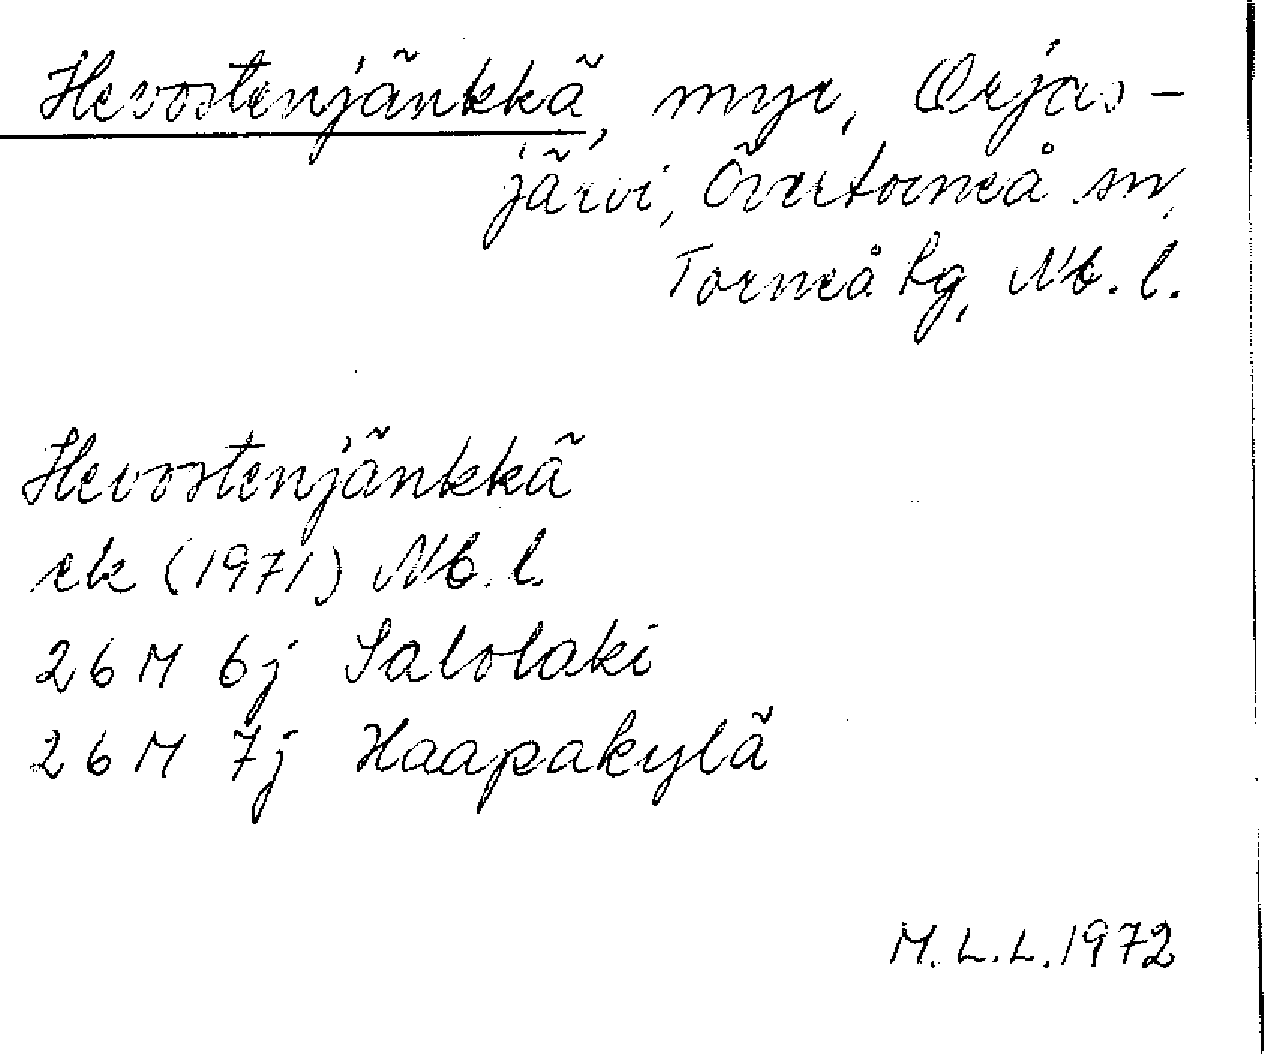 Hevostenjänkkä, myr, Orjas-
järvi, Övertorneå sn,
Torneå tg, Nb. l.
Hevostenjänkkä
ek (1971) Nb. l.
26 M 6j Salolaki
26 M 7j Haapakylä
M.L.L. 1972